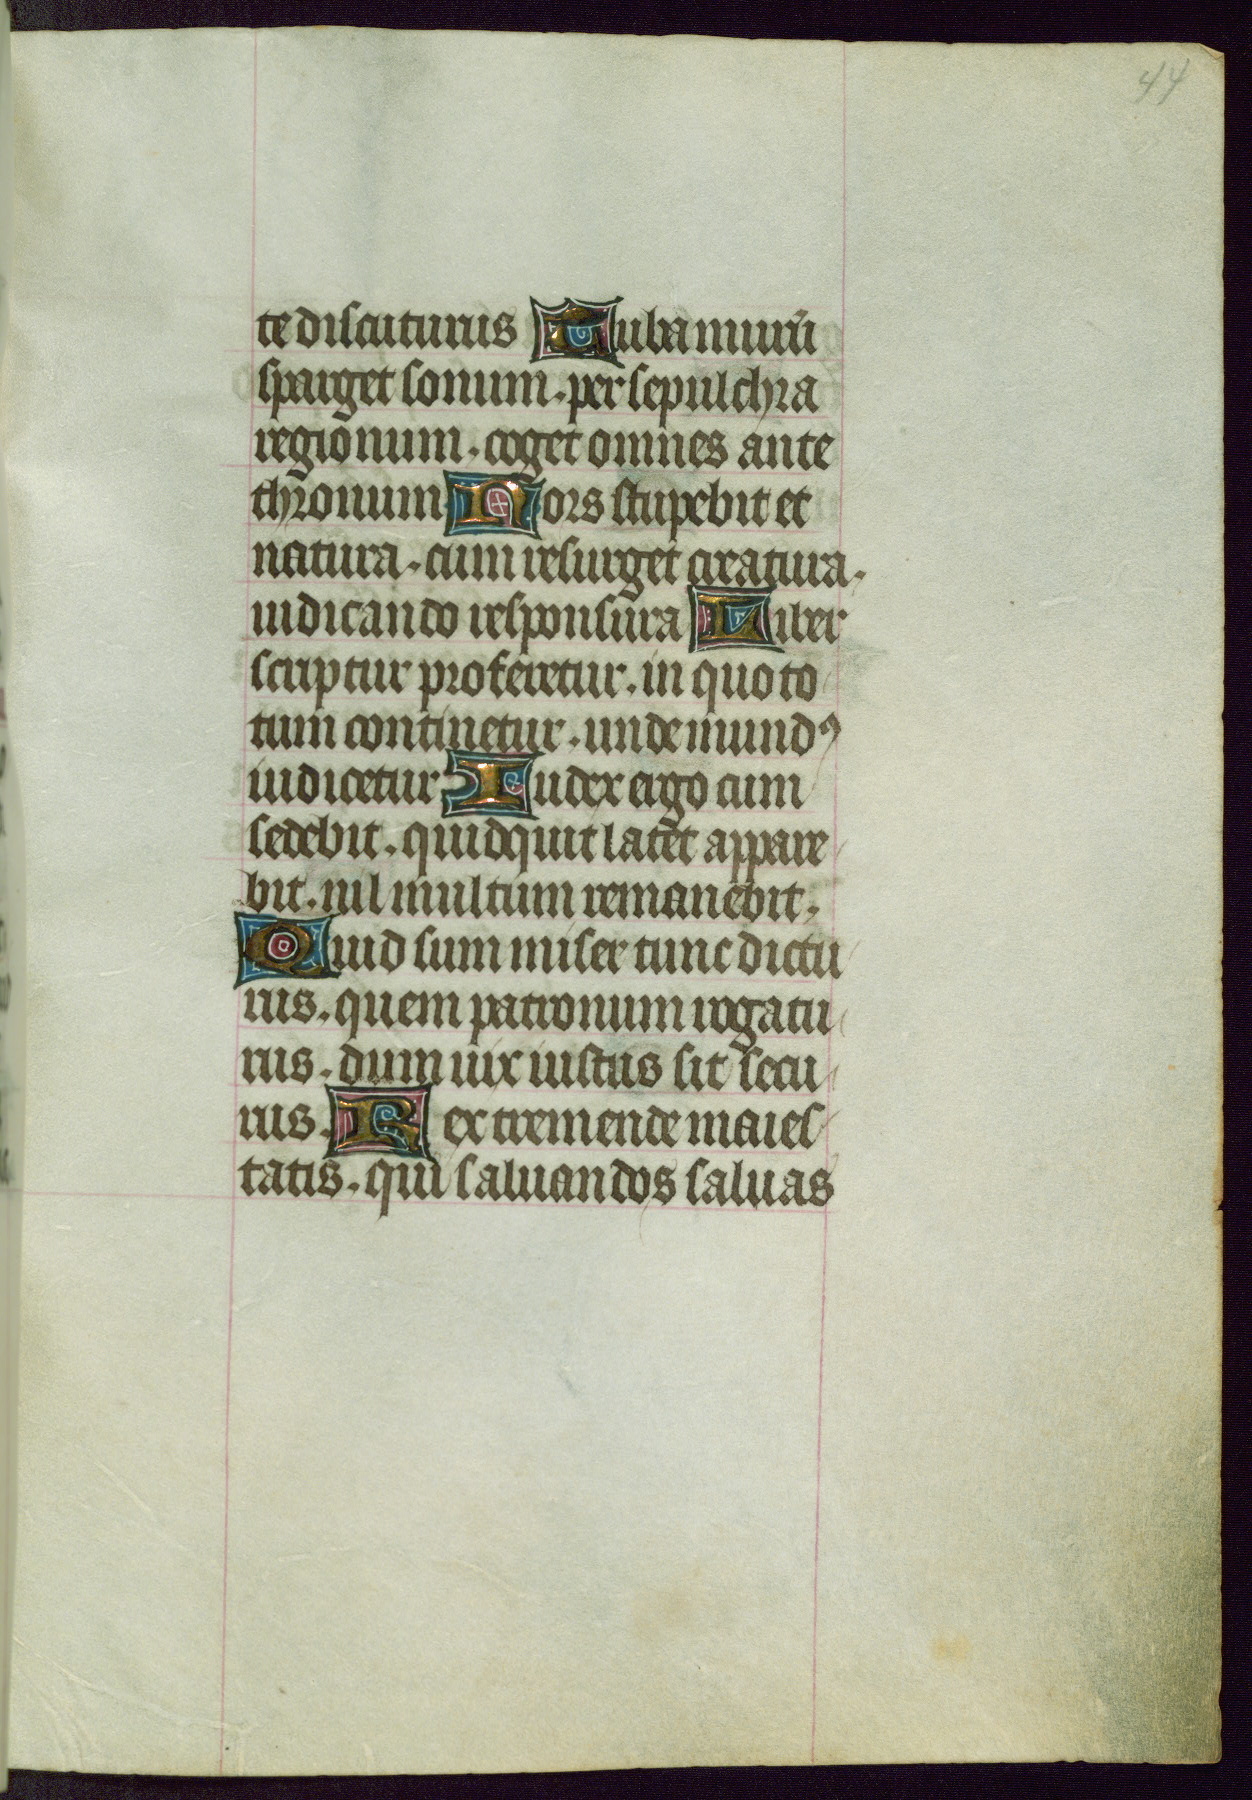 44
te discuturus Tuba mirū
sparget sonum. per sepulchra
regionum. coget omnes ante
thronum Mors stupebit et
natura. cum resurget creatura.
iudicando responsura Liber
scriptur proferetur. in quo to
tum continetur. unde mundꝰ
iudicetur Iudex ergo cum
sedebit. quidquit latet appare
bit. nil multum remanebit.
Quid sum miser tunc dictu
rus. quem patronum rogatu
rus. dum uix iustus sit secu
rus. Rex tremende maies
tatis. qui saluandos saluas